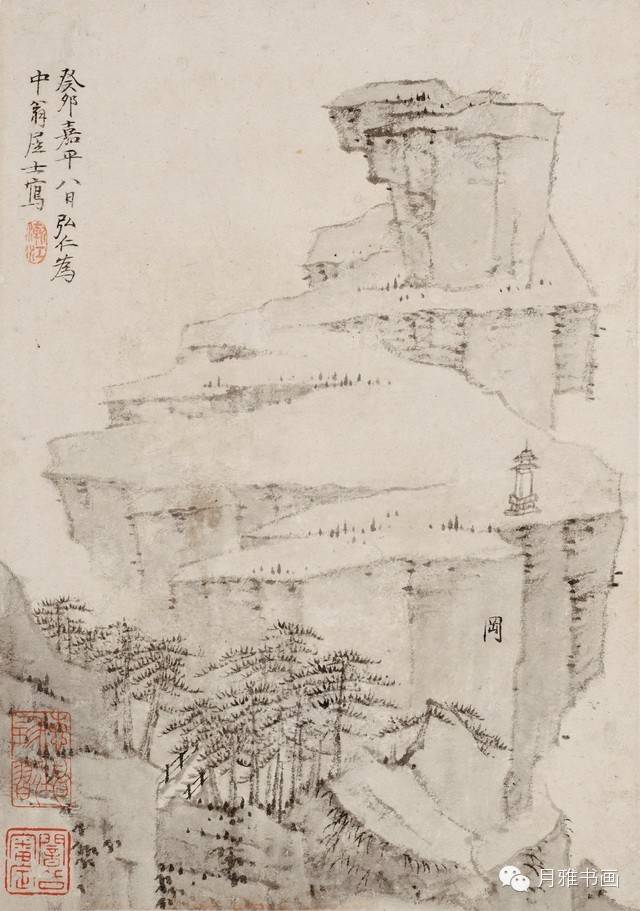 癸卯嘉平八日弘仁為
中翁居士寫
漸江
岡
月雅书画